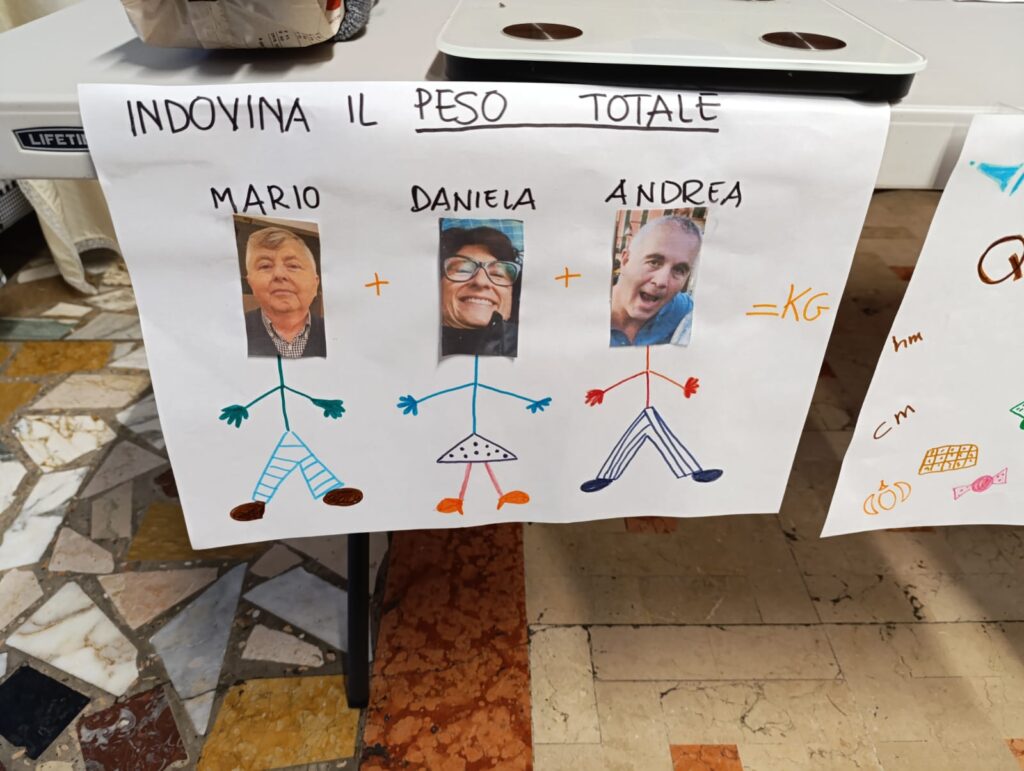 INDOVINA IL PESO TOTALE
MARIO + DANIELA + ANDREA = KG
LIFETI
hm
cm